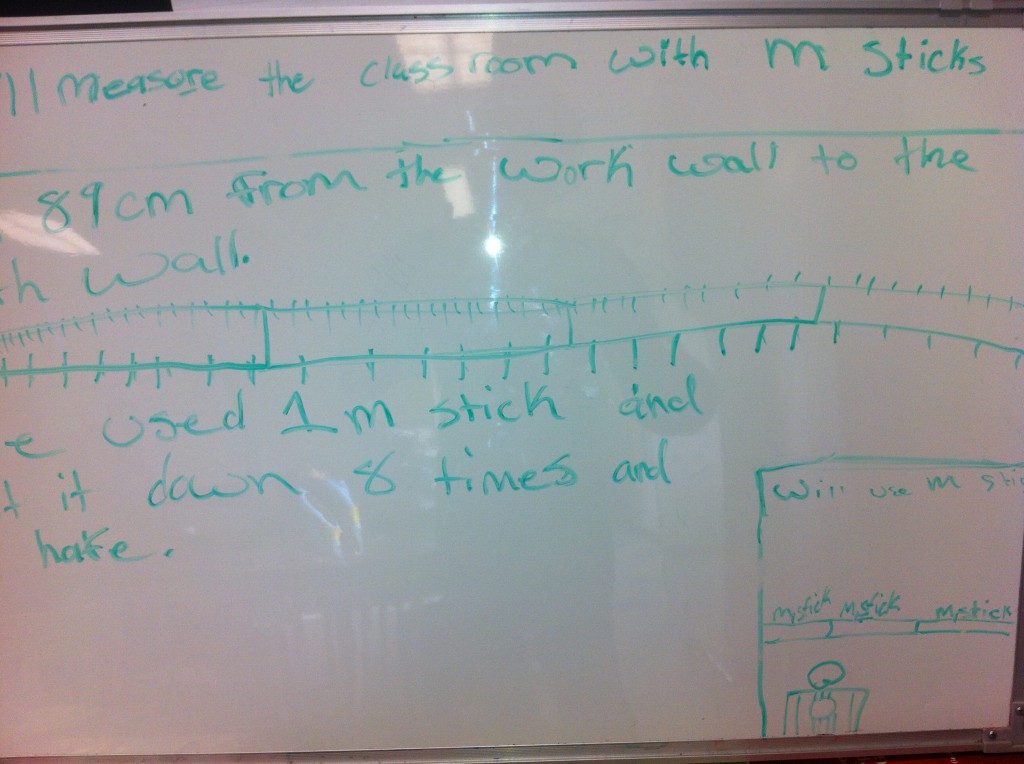 'll measure the classroom with m sticks
89cm from the work wall to the
h wall.
e used 1m stick and
t it down 8 times and
hafe.
Will use m stic
m stick m stick m stick